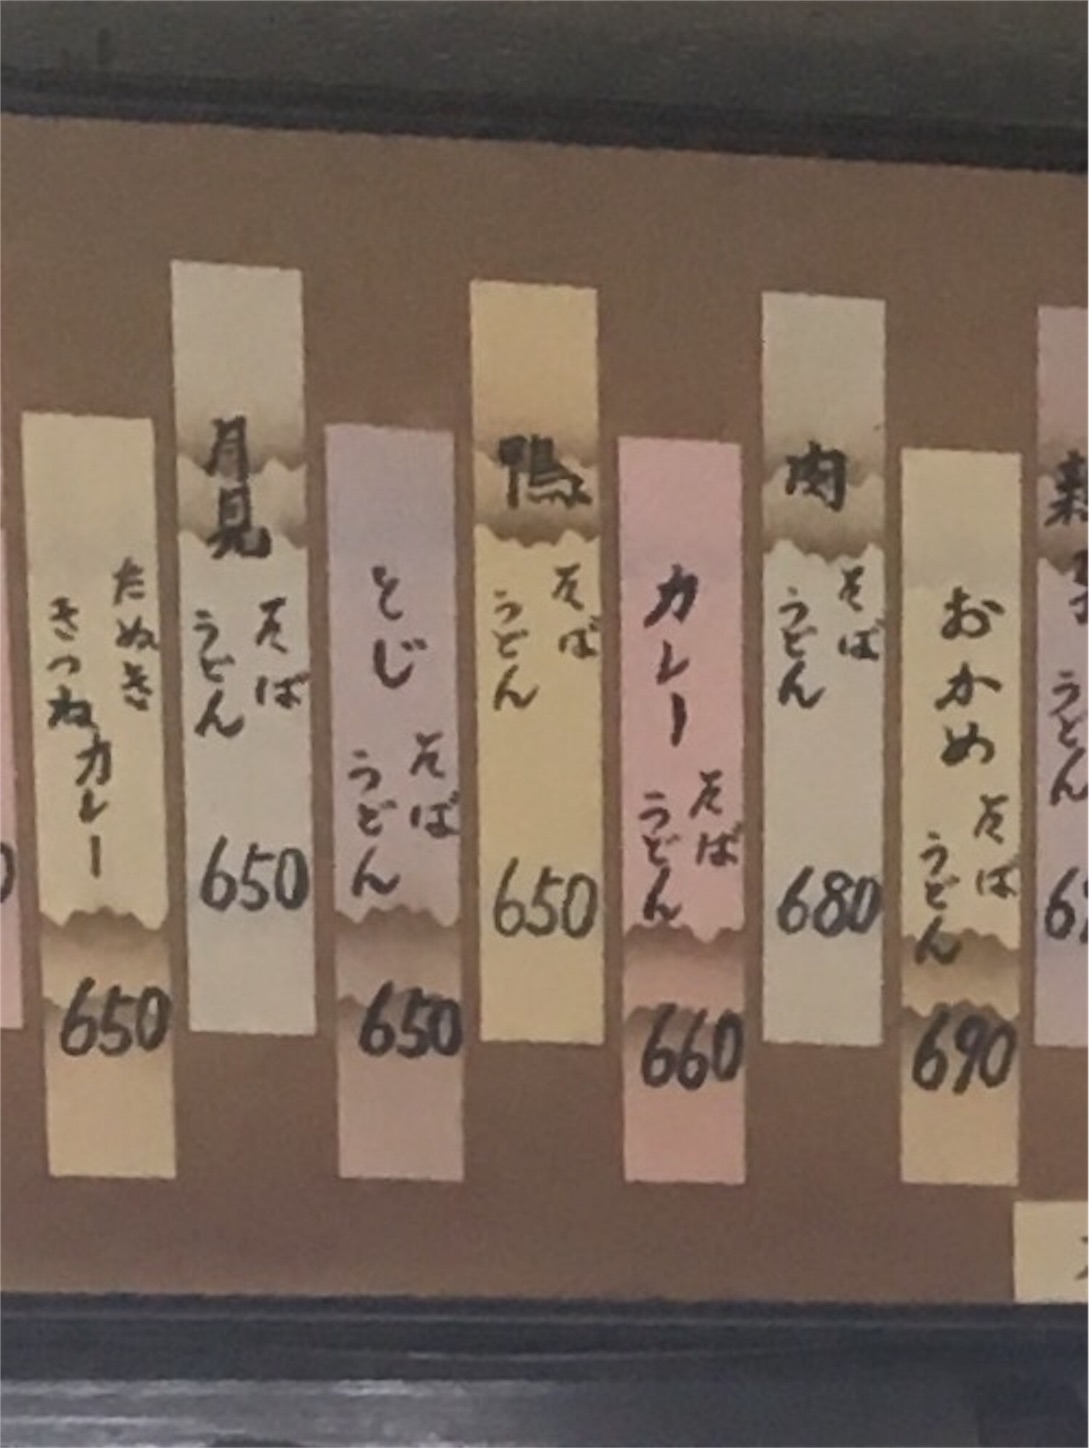 たぬき
きつね
カレー
650
月見
そば
うどん
650
とじ
そば
うどん
650
鴨
そば
うどん
650
カレー
そば
うどん
660
肉
そば
うどん
680
おかめ
そば
うどん
690
うどん